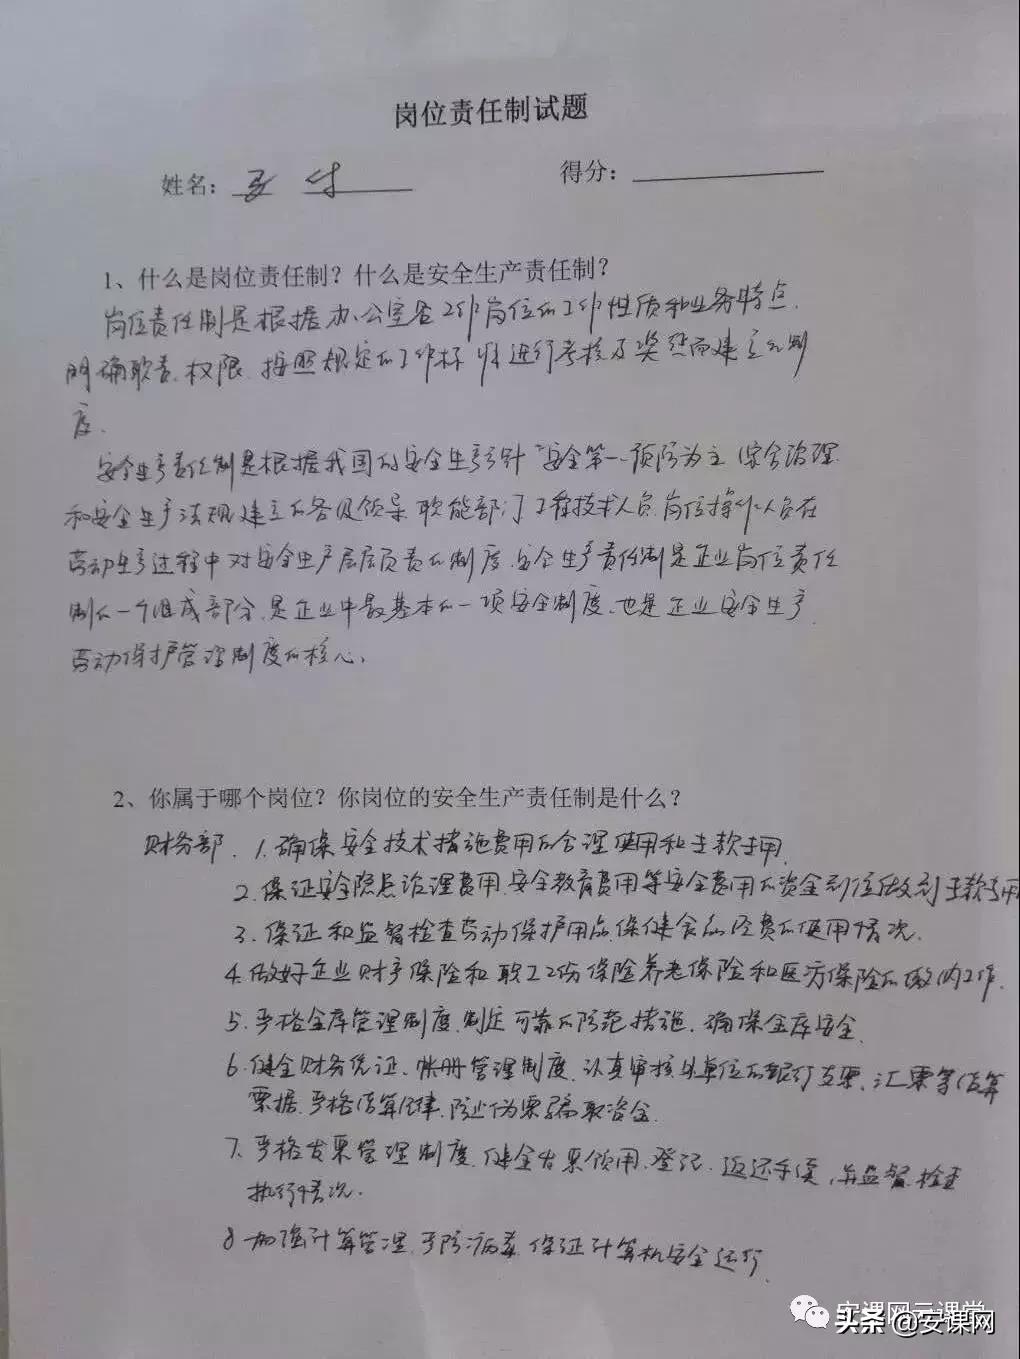 岗位责任制试题
姓名： 得分：
1、什么是岗位责任制？什么是安全生产责任制？
岗位责任制是根据办公室各工作岗位的工作性质和业务特点，
明确职责、权限，按照规定的工作标准进行考核及奖惩而建立的制
度。
安全生产责任制是根据我国的安全生产方针"安全第一、预防为主、综合治理
和安全生产法规建立的各级领导、职能部门、工程技术人员、岗位操作人员在
劳动生产过程中对安全生产层层负责的制度，安全生产责任制是企业岗位责任
制的一个组成部分，是企业中最基本的一项安全制度，也是企业安全生产、
劳动保护管理制度的核心。
2、你属于哪个岗位？你岗位的安全生产责任制是什么？
财务部．1.确保安全技术措施费用的合理使用和专款专用．
2.保证安全隐患治理费用、安全教育费用等安全费用的资金到位做到专款专用
3.保证和监督检查劳动保护用品、保健食品经费的使用情况．
4.做好企业财产保险和职工工伤保险养老保险和医疗保险的缴纳工作．
5.严格金库管理制度，制定可靠的防范措施，确保金库安全．
6.健全财务凭证、帐册管理制度，认真审核外单位的银行支票、汇票等结算
票据，严格结算纪律，防止伪票骗取资金．
7.严格发票管理制度，健全发票领用、登记、返还手续，并监督、检查
执行情况．
8.加强计算管理，预防病毒，保证计算机安全运行．
安课网云课堂
头条 @安课网